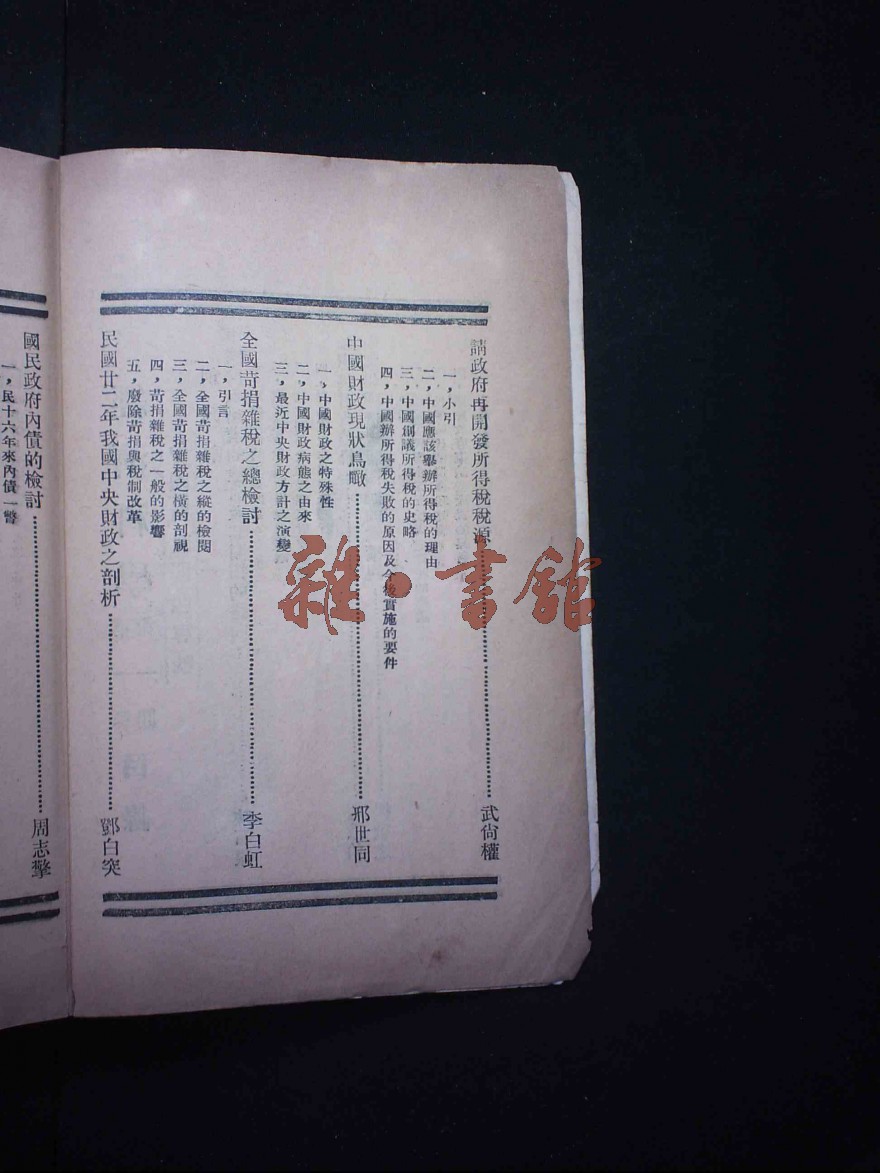 請政府再開發所得稅稅源……武尙權
一，小引
二，中國應該舉辦所得稅的理由
三，中國創議所得稅的史略
四，中國辦所得稅失敗的原因及今後實施的要件
中國財政現狀鳥瞰……邢世同
一，中國財政之特殊性
二，中國財政病態之由來
三，最近中央財政方計之演變
全國苛捐雜稅之總檢討……李白虹
一，引言
二，全國苛捐雜稅之縱的檢閱
三，全國苛捐雜稅之橫的剖視
四，苛捐雜稅之一般的影響
五，廢除苛捐與稅制改革
民國廿二年我國中央財政之剖析……鄧白突
國民政府內債的檢討……周志擎
一，民十六年來內債一瞥
雜·書館